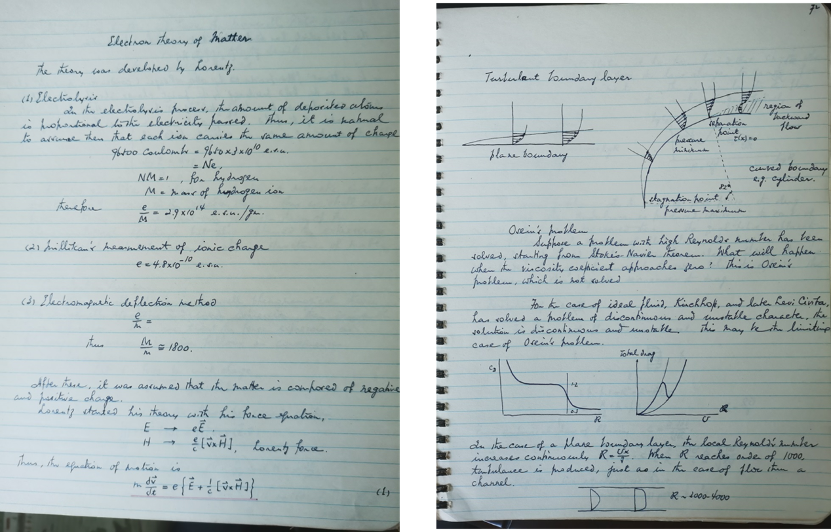 Electron theory of Matter
The theory was developed by Lorentz.
(1) Electrolysis
In the electrolysis process, the amount of deposited atoms
is proportional to the electricity passed. Thus, it is natural
to assume then that each ion carries the same amount of charge
96500 Coulombs = 9650 x 3 x 10^10 e.s.u.
= Ne,
NM = 1, for hydrogen
M = mass of hydrogen ion
therefore e/M = 2.9 x 10^14 e.s.u./gr.
(2) Millikan's measurement of ionic charge
e = 4.8 x 10^-10 e.s.u.
(3) Electromagnetic deflection method
e/m =
thus M/m ≅ 1800.
After these, it was assumed that the matter is composed of negative
and positive charge.
Lorentz started his theory with his force equation,
E → eE⃗.
H → e/c [v⃗ x H⃗], Lorentz force.
Thus, the equation of motion is
m dv⃗/dt = e { E⃗ + 1/c [v⃗ x H⃗] }
(1)
72
Turbulent boundary layer
region of
backward
flow
separation
point
pressure
minimum
plane boundary
curved boundary
e.g. cylinder.
stagnation point
pressure maximum
Oseen's problem
Suppose a problem with high Reynolds number has been
solved, starting from Stokes Navier theorem. What will happen
when the viscosity coefficient approaches zero? This is Oseen's
problem, which is not solved
For the case of ideal fluid, Kirchhoff, and late Levi Civita,
has solved a problem of discontinuous and unstable character. the
solution is discontinuous and unstable. This may be the limiting
case of Oseen's problem.
Total drag
R
U
In the case of a plane boundary layer, the local Reynold's number
increases continuously R = Ux/ν. When R reaches order of 1000,
turbulence is produced, just as in the case of flow thru a
channel.
R ~ 1000-4000